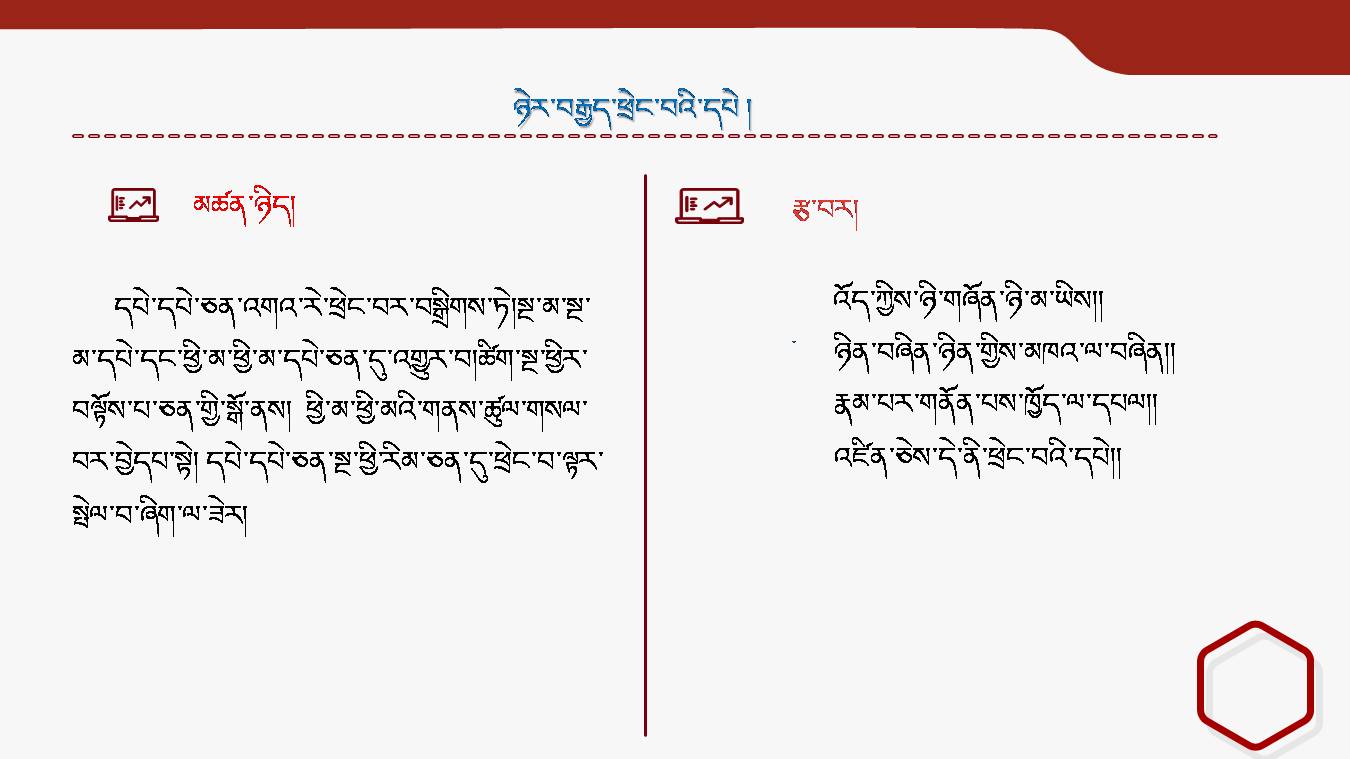 ཉེར་བརྒྱད་ཕྲེང་བའི་དཔེ །
མཚན་ཉིད།
དཔེ་དཔེ་ཅན་འགའ་རེ་ཕྲེང་བར་བསྒྲིགས་ཏེ།སྔ་མ་སྔ་
མ་དཔེ་དང་ཕྱི་མ་ཕྱི་མ་དཔེ་ཅན་དུ་འགྱུར་བ།ཚིག་སྔ་ཕྱིར་
བལྟོས་པ་ཅན་གྱི་སྒོ་ནས། ཕྱི་མ་ཕྱི་མའི་གནས་ཚུལ་གསལ་
བར་བྱེདཔ་སྟེ། དཔེ་དཔེ་ཅན་སྔ་ཕྱི་རིམ་ཅན་དུ་ཕྲེང་བ་ལྟར་
སྤེལ་བ་ཞིག་ལ་ཟེར།
རྩ་བར།
འོད་ཀྱིས་ཉི་གཞོན་ཉི་མ་ཡིས།།
ཉིན་བཞིན་ཉིན་གྱིས་མཁའ་ལ་བཞིན།།
རྣམ་པར་གནོན་པས་ཁྱོད་ལ་དཔལ།།
འཛིན་ཅེས་དེ་ནི་ཕྲེང་བའི་དཔེ།།